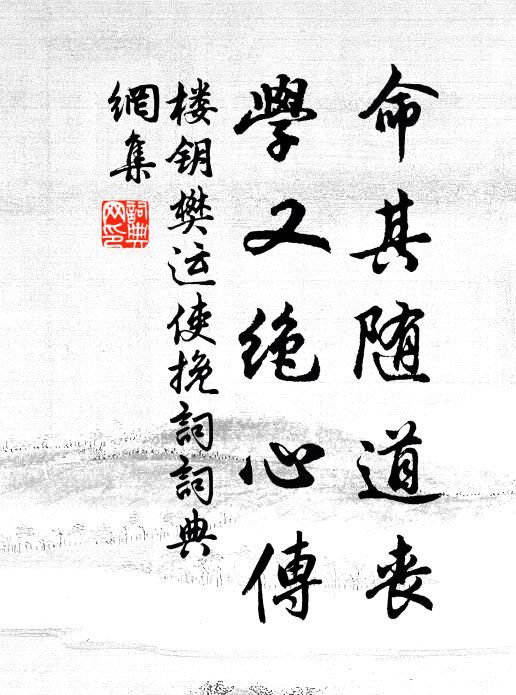 命其随道丧
學又绝心傳
楼钥樊运使挽詞詞典
網集
詞典网印